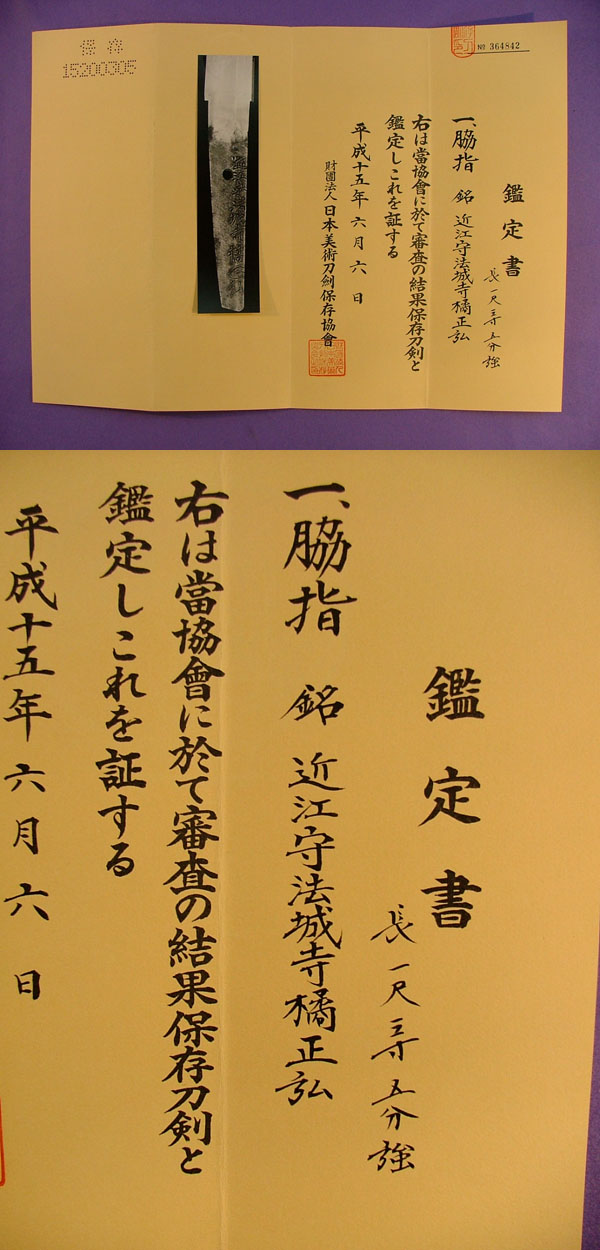 No 364842
鑑定書
長一尺三寸五分強
一、脇指 銘 近江守法城寺橘正弘
右は當協會に於て審査の結果保存刀剣と
鑑定しこれを証する
平成十五年六月六日
財團法人日本美術刀剣保存協會
保存
15200305
鑑定書
長一尺三寸五分強
一、脇指 銘 近江守法城寺橘正弘
右は當協會に於て審査の結果保存刀剣と
鑑定しこれを証する
平成十五年六月六日